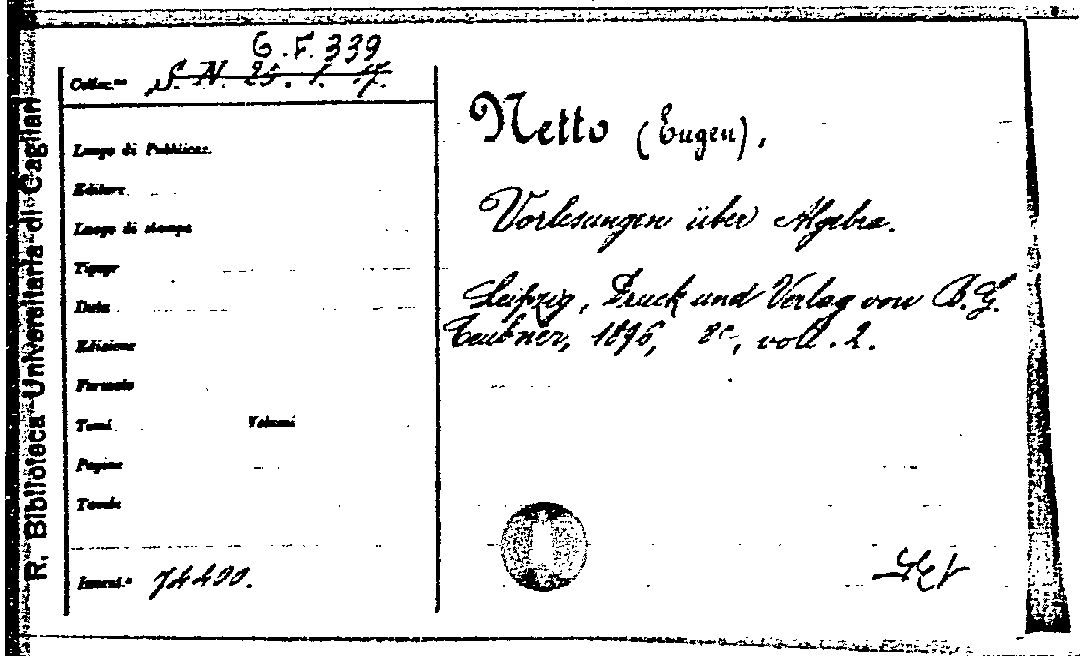 R. Biblioteca Universitaria di Cagliari
G.F. 339
Colloc.ne S. N. 25. 1. 17.
Luogo di Pubblicaz.
Editore
Luogo di stampa
Tipogr
Data
Edizione
Formato
Tomi Volumi
Pagine
Tavole
Invent.º 74400.
Netto (Eugen),
Vorlesungen über Algebra.
Leipzig, Druck und Verlag von B. G.
Teubner, 1896, 8º, voll. 2.